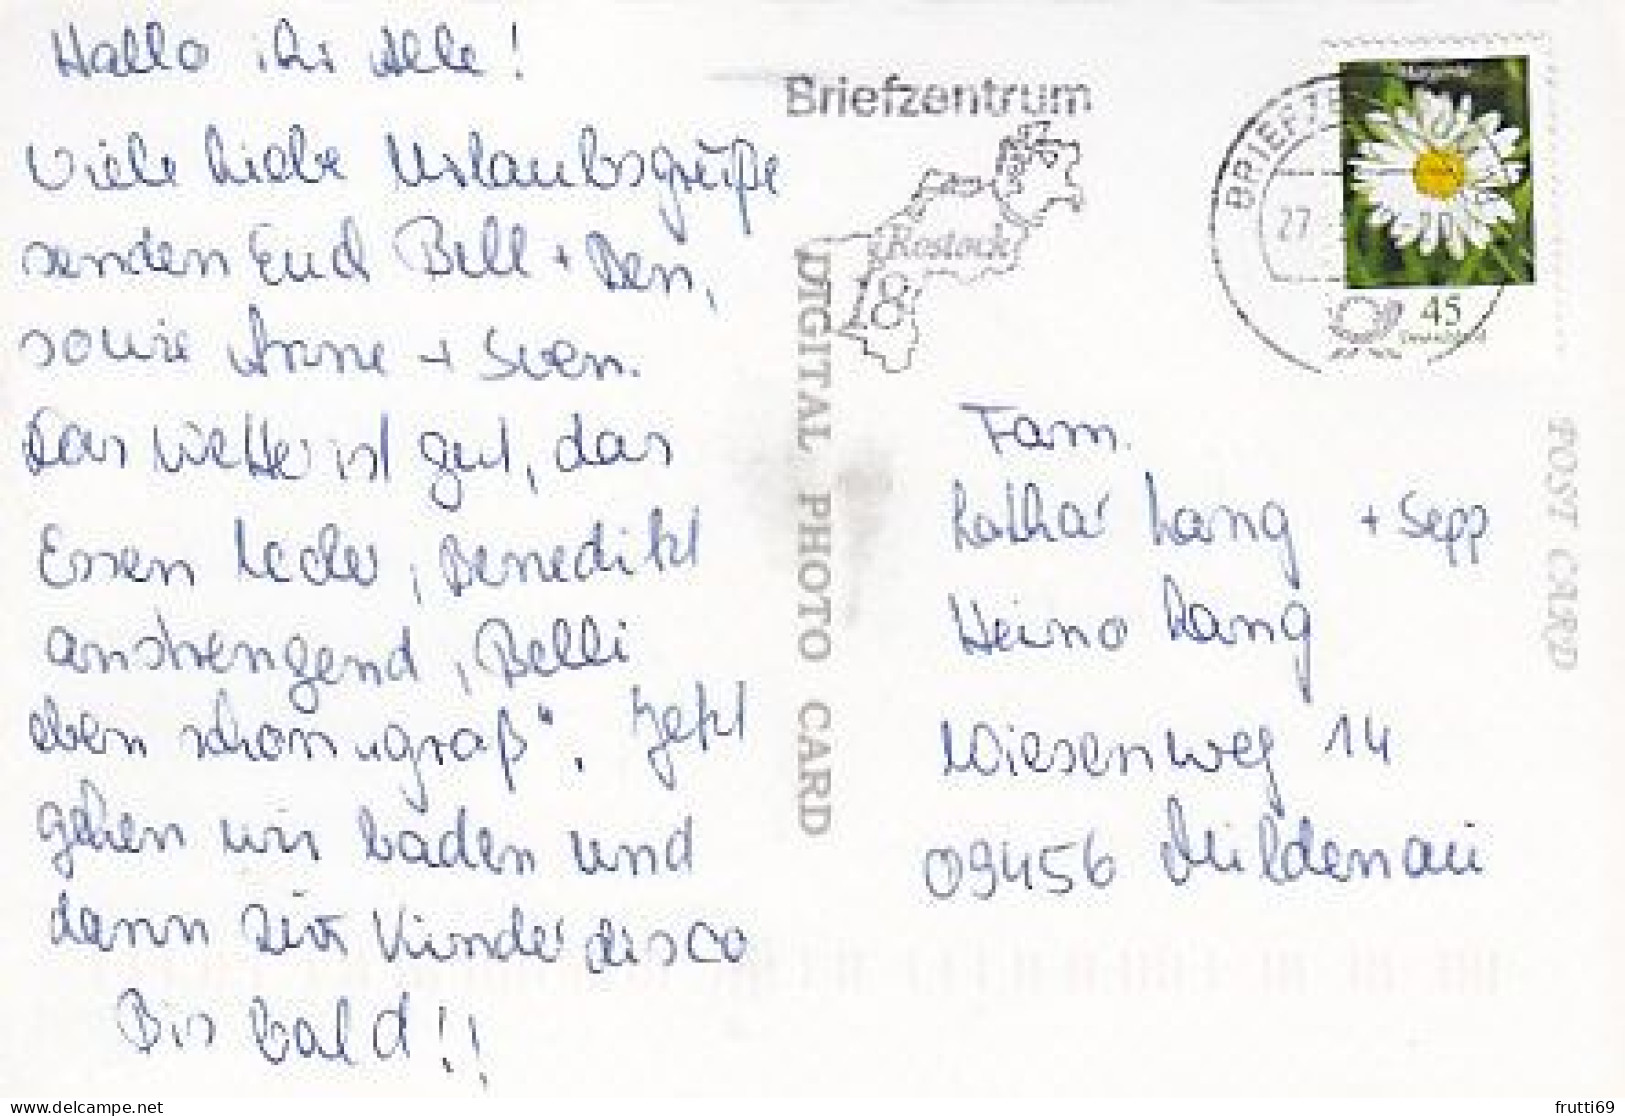 Hallo ihr Alle!
Viele liebe Urlaubsgrüße
senden Euch Bell + Ben,
sowie Anne + Sven.
Das Wetter ist gut, das
Essen lecker, Benedikt
anstrengend, Belli
eben schon „groß“. Jetzt
gehen wir baden und
dann zur Kinderdisco
Bis bald!!
DIGITAL PHOTO CARD
Briefzentrum
Rostock
18
BRIEFZE
27
45
Deutschland
POST CARD
Fam.
Lothar Lang + Sepp
Heino Lang
Wiesenweg 14
09456 Mildenau
frutti69